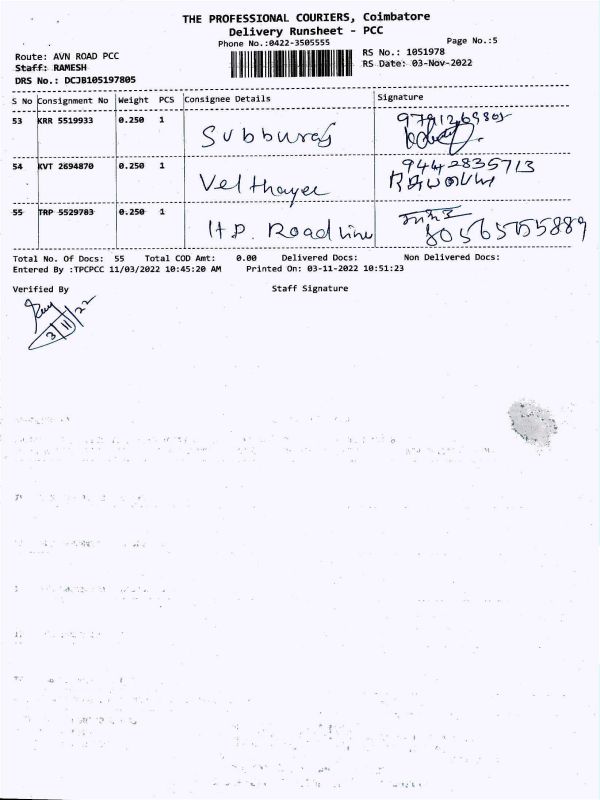 THE PROFESSIONAL COURIERS, Coimbatore
Delivery Runsheet - PCC
Phone No.:0422-3505555
Page No.:5
Route: AVN ROAD PCC
RS No.: 1051978
Staff: RAMESH
RS Date: 03-Nov-2022
DRS No.: DCJB105197805
S No Consignment No Weight PCS Consignee Details Signature
53 KRR 5519933 0.250 1 Subburaj
54 KVT 2694870 0.250 1 Velthayee 9442835713
55 TRP 5529783 0.250 1 H.P. Road line 8056555889
Total No. Of Docs: 55 Total COD Amt: 0.00 Delivered Docs: Non Delivered Docs:
Entered By :TPCPCC 11/03/2022 10:45:20 AM Printed On: 03-11-2022 10:51:23
Verified By Staff Signature
3/11/22